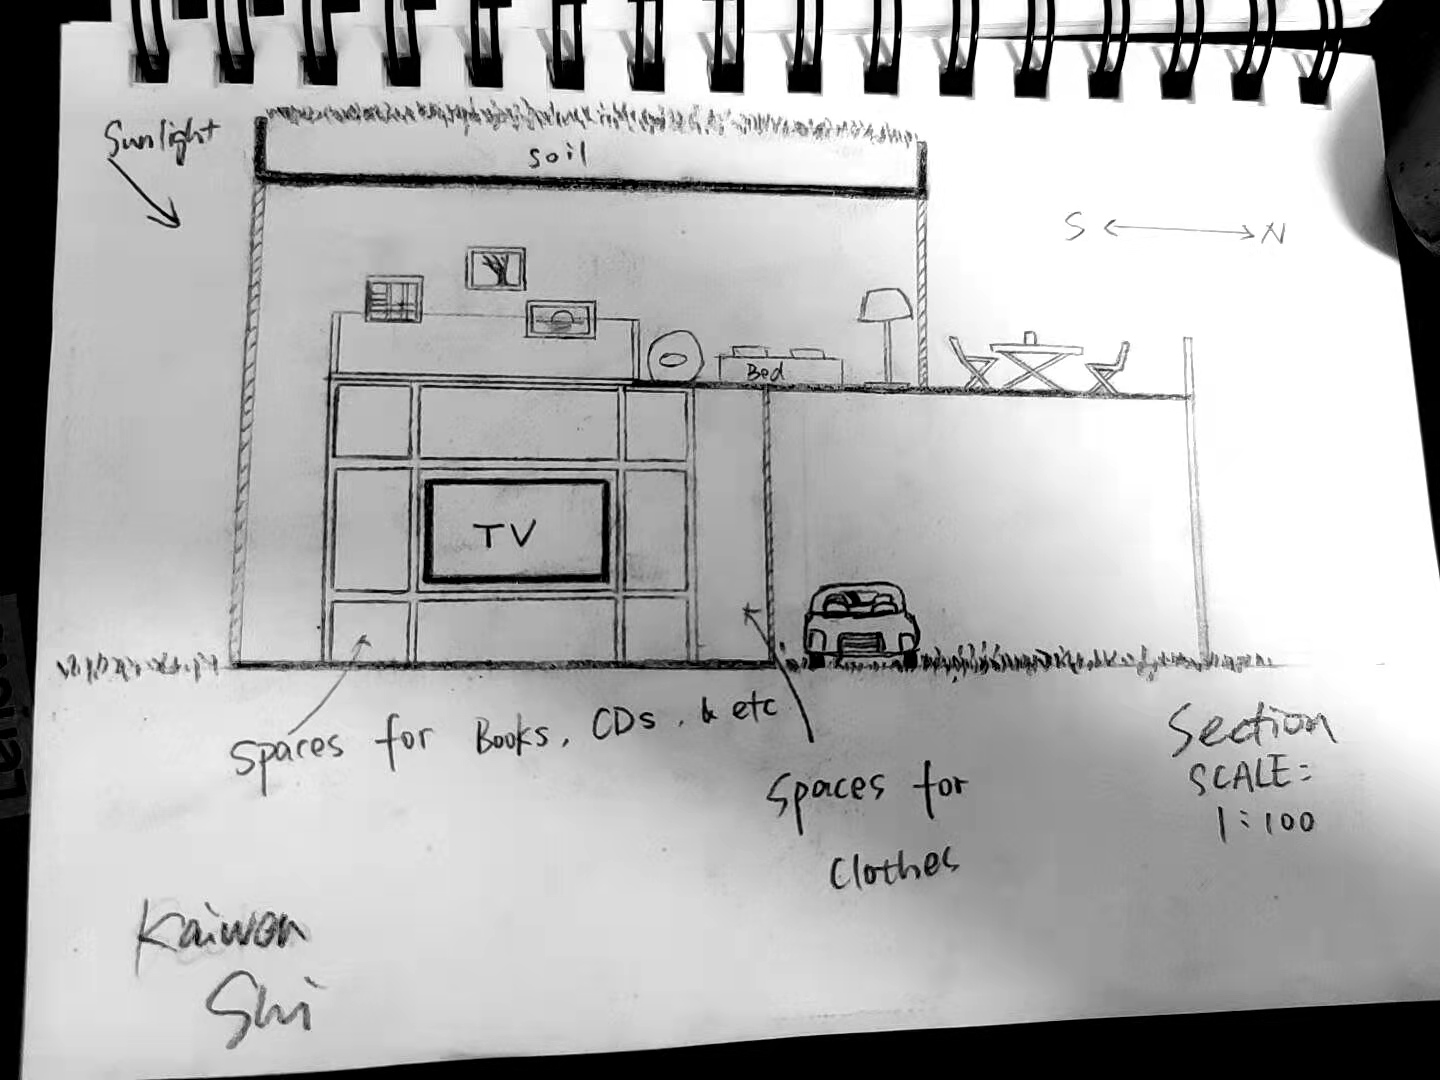 Sunlight
soil
S N
Bed
TV
Spaces for Books, CDs, & etc
Spaces for
Clothes
Section
SCALE:
1:100
Kaiwen
Shi